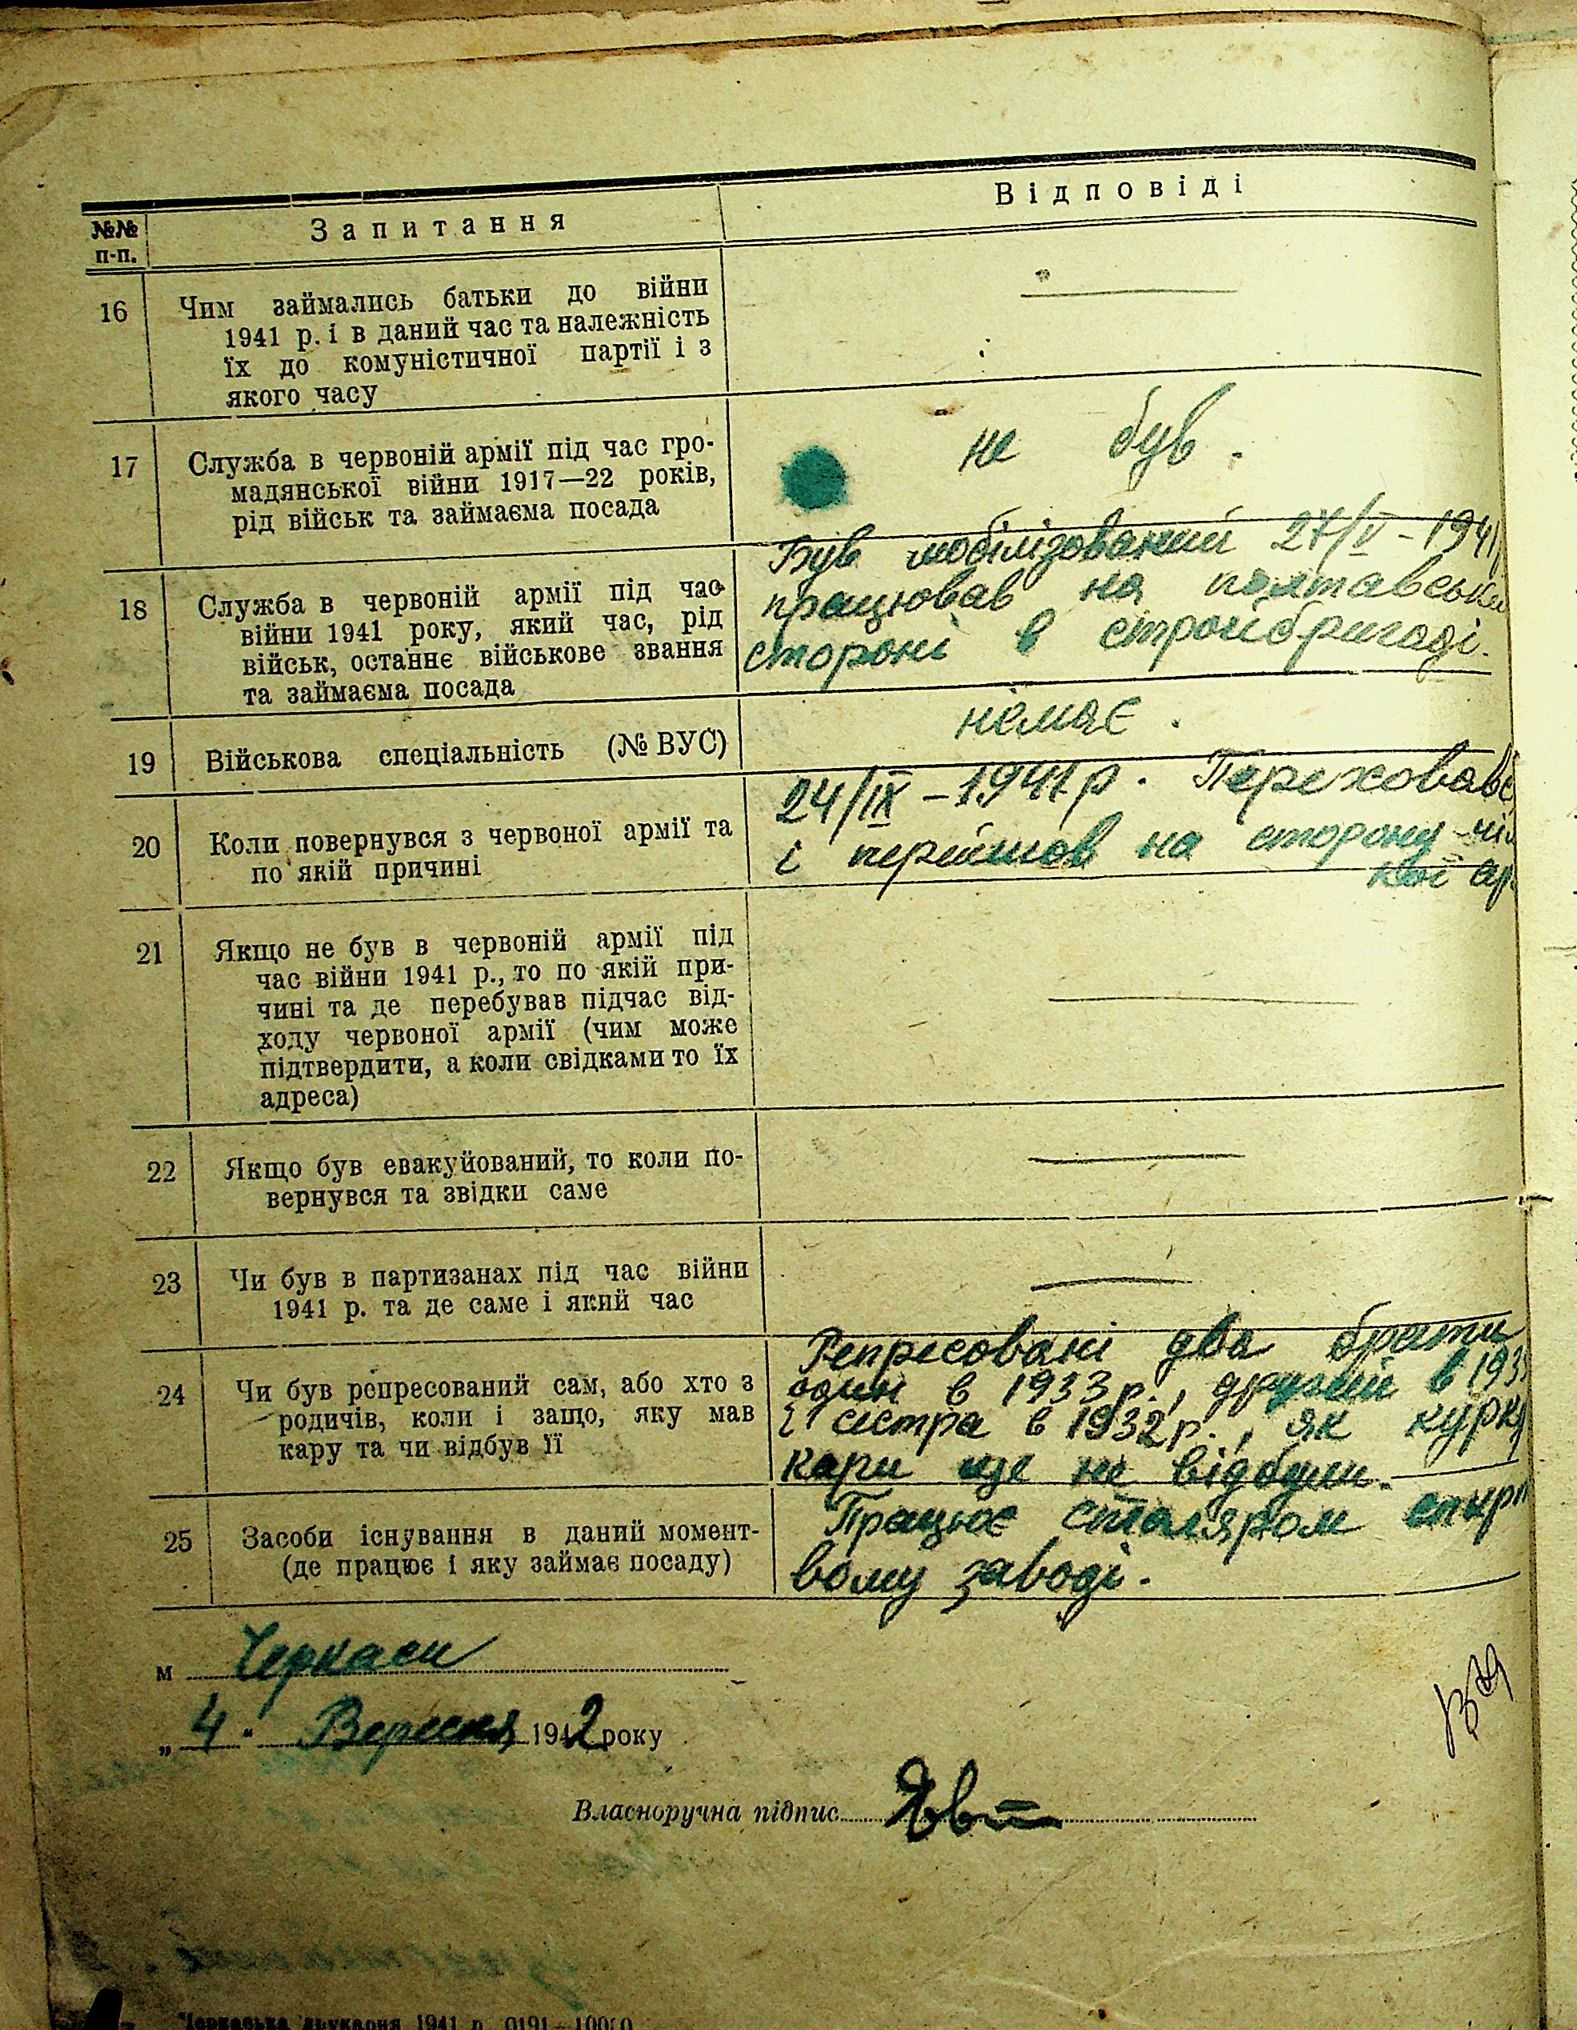 №№ п-п.
Запитання
Відповіді
16
Чим займались батьки до війни
1941 р. і в даний час та належність
їх до комуністичної партії і з
якого часу
17
Служба в червоній армії під час гро-
мадянської війни 1917—22 років,
рід військ та займаєма посада
не був.
18
Служба в червоній армії під час
війни 1941 року, який час, рід
військ, останнє військове звання
та займаєма посада
Був мобілізований 27/V - 1941
працював на полтавськ
стороні в стройбригаді.
19
Військова спеціальність (№ ВУС)
немає.
20
Коли повернувся з червоної армії та
по якій причині
24/IX - 1941 р. Переховавс
і перейшов на сторону
кої ар
21
Якщо не був в червоній армії під
час війни 1941 р., то по якій при-
чині та де перебував підчас від-
ходу червоної армії (чим може
підтвердити, а коли свідками то їх
адреса)
22
Якщо був евакуйований, то коли по-
вернувся та звідки саме
23
Чи був в партизанах під час війни
1941 р. та де саме і який час
24
Чи був репресований сам, або хто з
родичів, коли і защо, яку мав
кару та чи відбув її
Репресовані два брати
один в 1933 р., другий в 193
і сестра в 1932 р., як курк
кари ще не відбули.
25
Засоби існування в даний момент-
(де працює і яку займає посаду)
Працює столяром спирт
вому заводі.
м Черкаси
„4“ Вересня 1942 року
Власноручна підпис
Черкаська друкарня 1941 р. 0191—10000